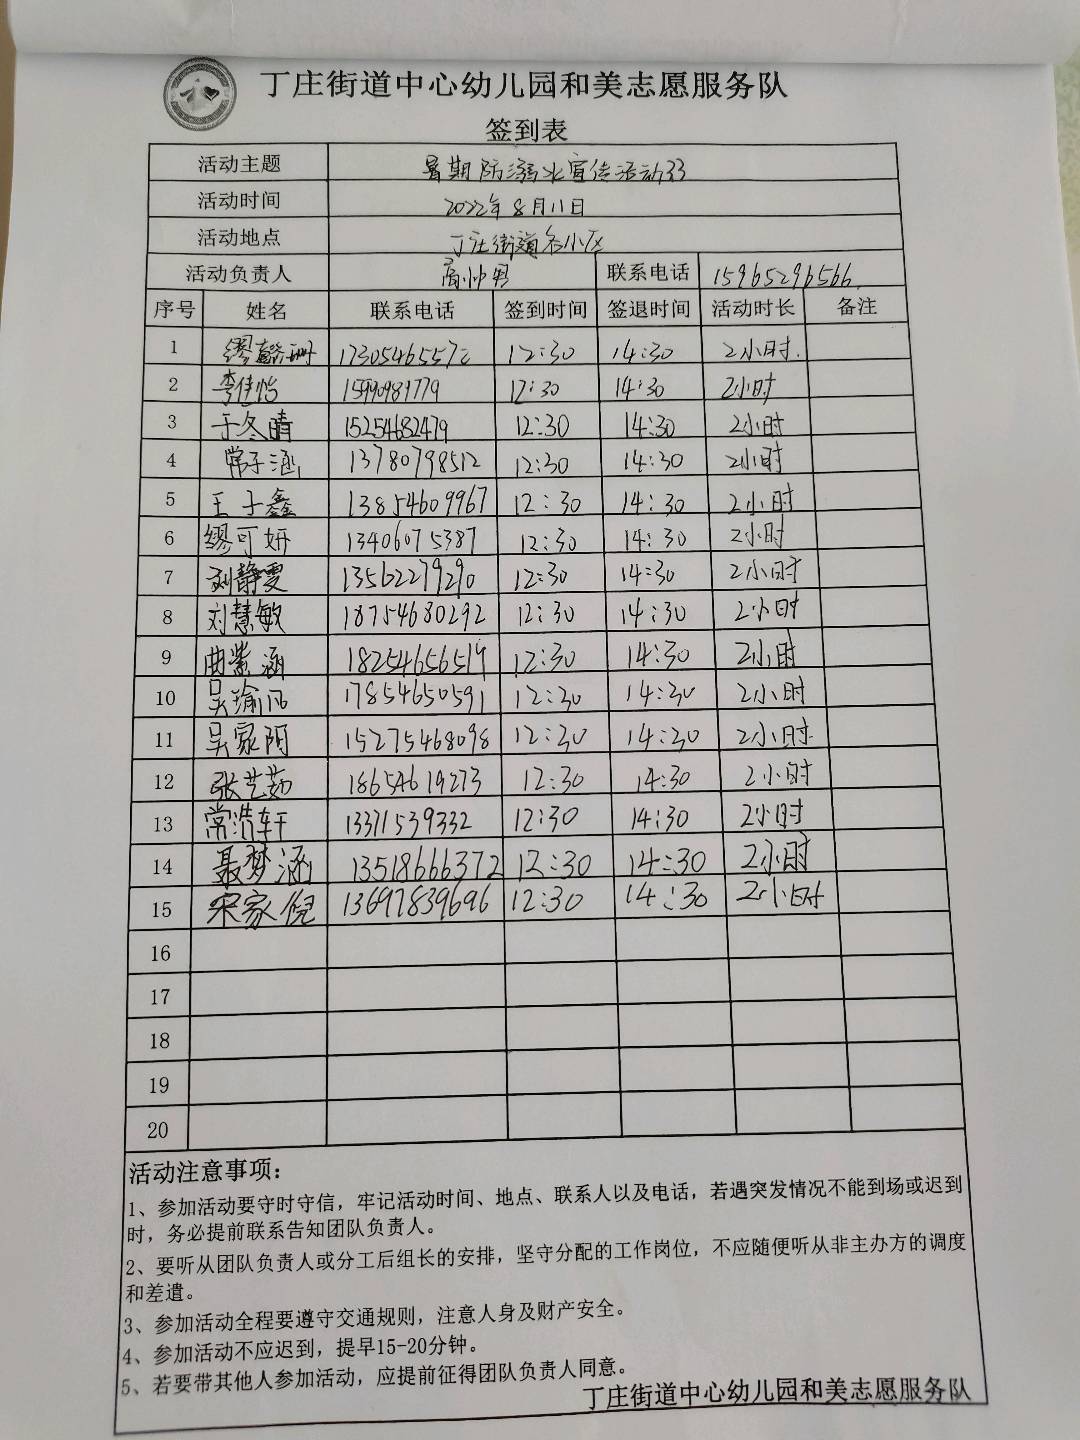 丁庄街道中心幼儿园和美志愿服务队
签到表
活动主题 暑期防溺水宣传活动
活动时间 2022年8月11日
活动地点 丁庄街道各小区
活动负责人 联系电话 15965296566
序号 姓名 联系电话 签到时间 签退时间 活动时长 备注
1 缪懿珊 17305465572 12:30 14:30 2小时
2 李佳怡 15990981779 12:30 14:30 2小时
3 于冬晴 15254682479 12:30 14:30 2小时
4 常子涵 13780798512 12:30 14:30 2小时
5 王子鑫 13854609967 12:30 14:30 2小时
6 缪可妍 13406075387 12:30 14:30 2小时
7 刘静雯 13562279290 12:30 14:30 2小时
8 刘慧敏 18754680292 12:30 14:30 2小时
9 曲紫涵 18254656519 12:30 14:30 2小时
10 17854650591 12:30 14:30 2小时
11 15275468098 12:30 14:30 2小时
12 张艺茹 18654619273 12:30 14:30 2小时
13 常浩轩 13311539332 12:30 14:30 2小时
14 聂梦涵 13518666372 12:30 14:30 2小时
15 宋家倪 13697839696 12:30 14:30 2小时
16
17
18
19
20
活动注意事项:
1、参加活动要守时守信，牢记活动时间、地点、联系人以及电话，若遇突发情况不能到场或迟到
时，务必提前联系告知团队负责人。
2、要听从团队负责人或分工后组长的安排，坚守分配的工作岗位，不应随便听从非主办方的调度
和差遣。
3、参加活动全程要遵守交通规则，注意人身及财产安全。
4、参加活动不应迟到，提早15-20分钟。
5、若要带其他人参加活动，应提前征得团队负责人同意。
丁庄街道中心幼儿园和美志愿服务队